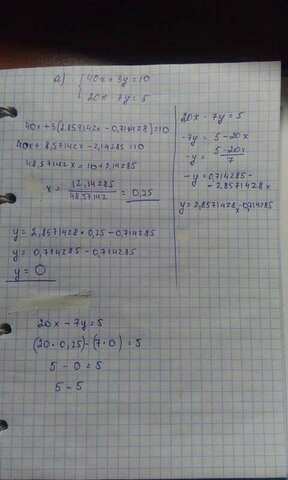 д) { 40x + 3y = 10
20x - 7y = 5
40x + 3(2,857142x - 0,714428) = 10
40x + 8,57142x - 2,14285 = 10
48,57142x = 10 + 2,14285
x = 12,14285 / 48,57142 = 0,25
y = 2,8571428 × 0,25 - 0,714285
y = 0,714285 - 0,714285
y = 0
20x - 7y = 5
-7y = 5 - 20x
-y = 5 - 20x / 7
-y = 0,714285 -
- 2,857142x
y = 2,857142x - 0,714285
20x - 7y = 5
(20 · 0,25) - (7 · 0) = 5
5 - 0 = 5
5 - 5